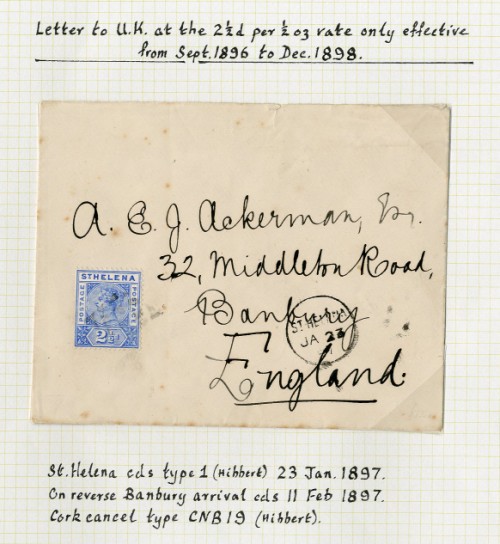 Letter to U.K. at the 2½d per ½ oz rate only effective
from Sept. 1896 to Dec. 1898.
A. E. J. Ackerman, Esq.
32, Middleton Road,
Banbury
England.
ST HELENA
POSTAGE
POSTAGE
2½d
ST. HELENA
JA 23
St. Helena cds type 1 (Hibbert) 23 Jan. 1897.
On reverse Banbury arrival cds 11 Feb 1897.
Cork cancel type CNB19 (Hibbert).